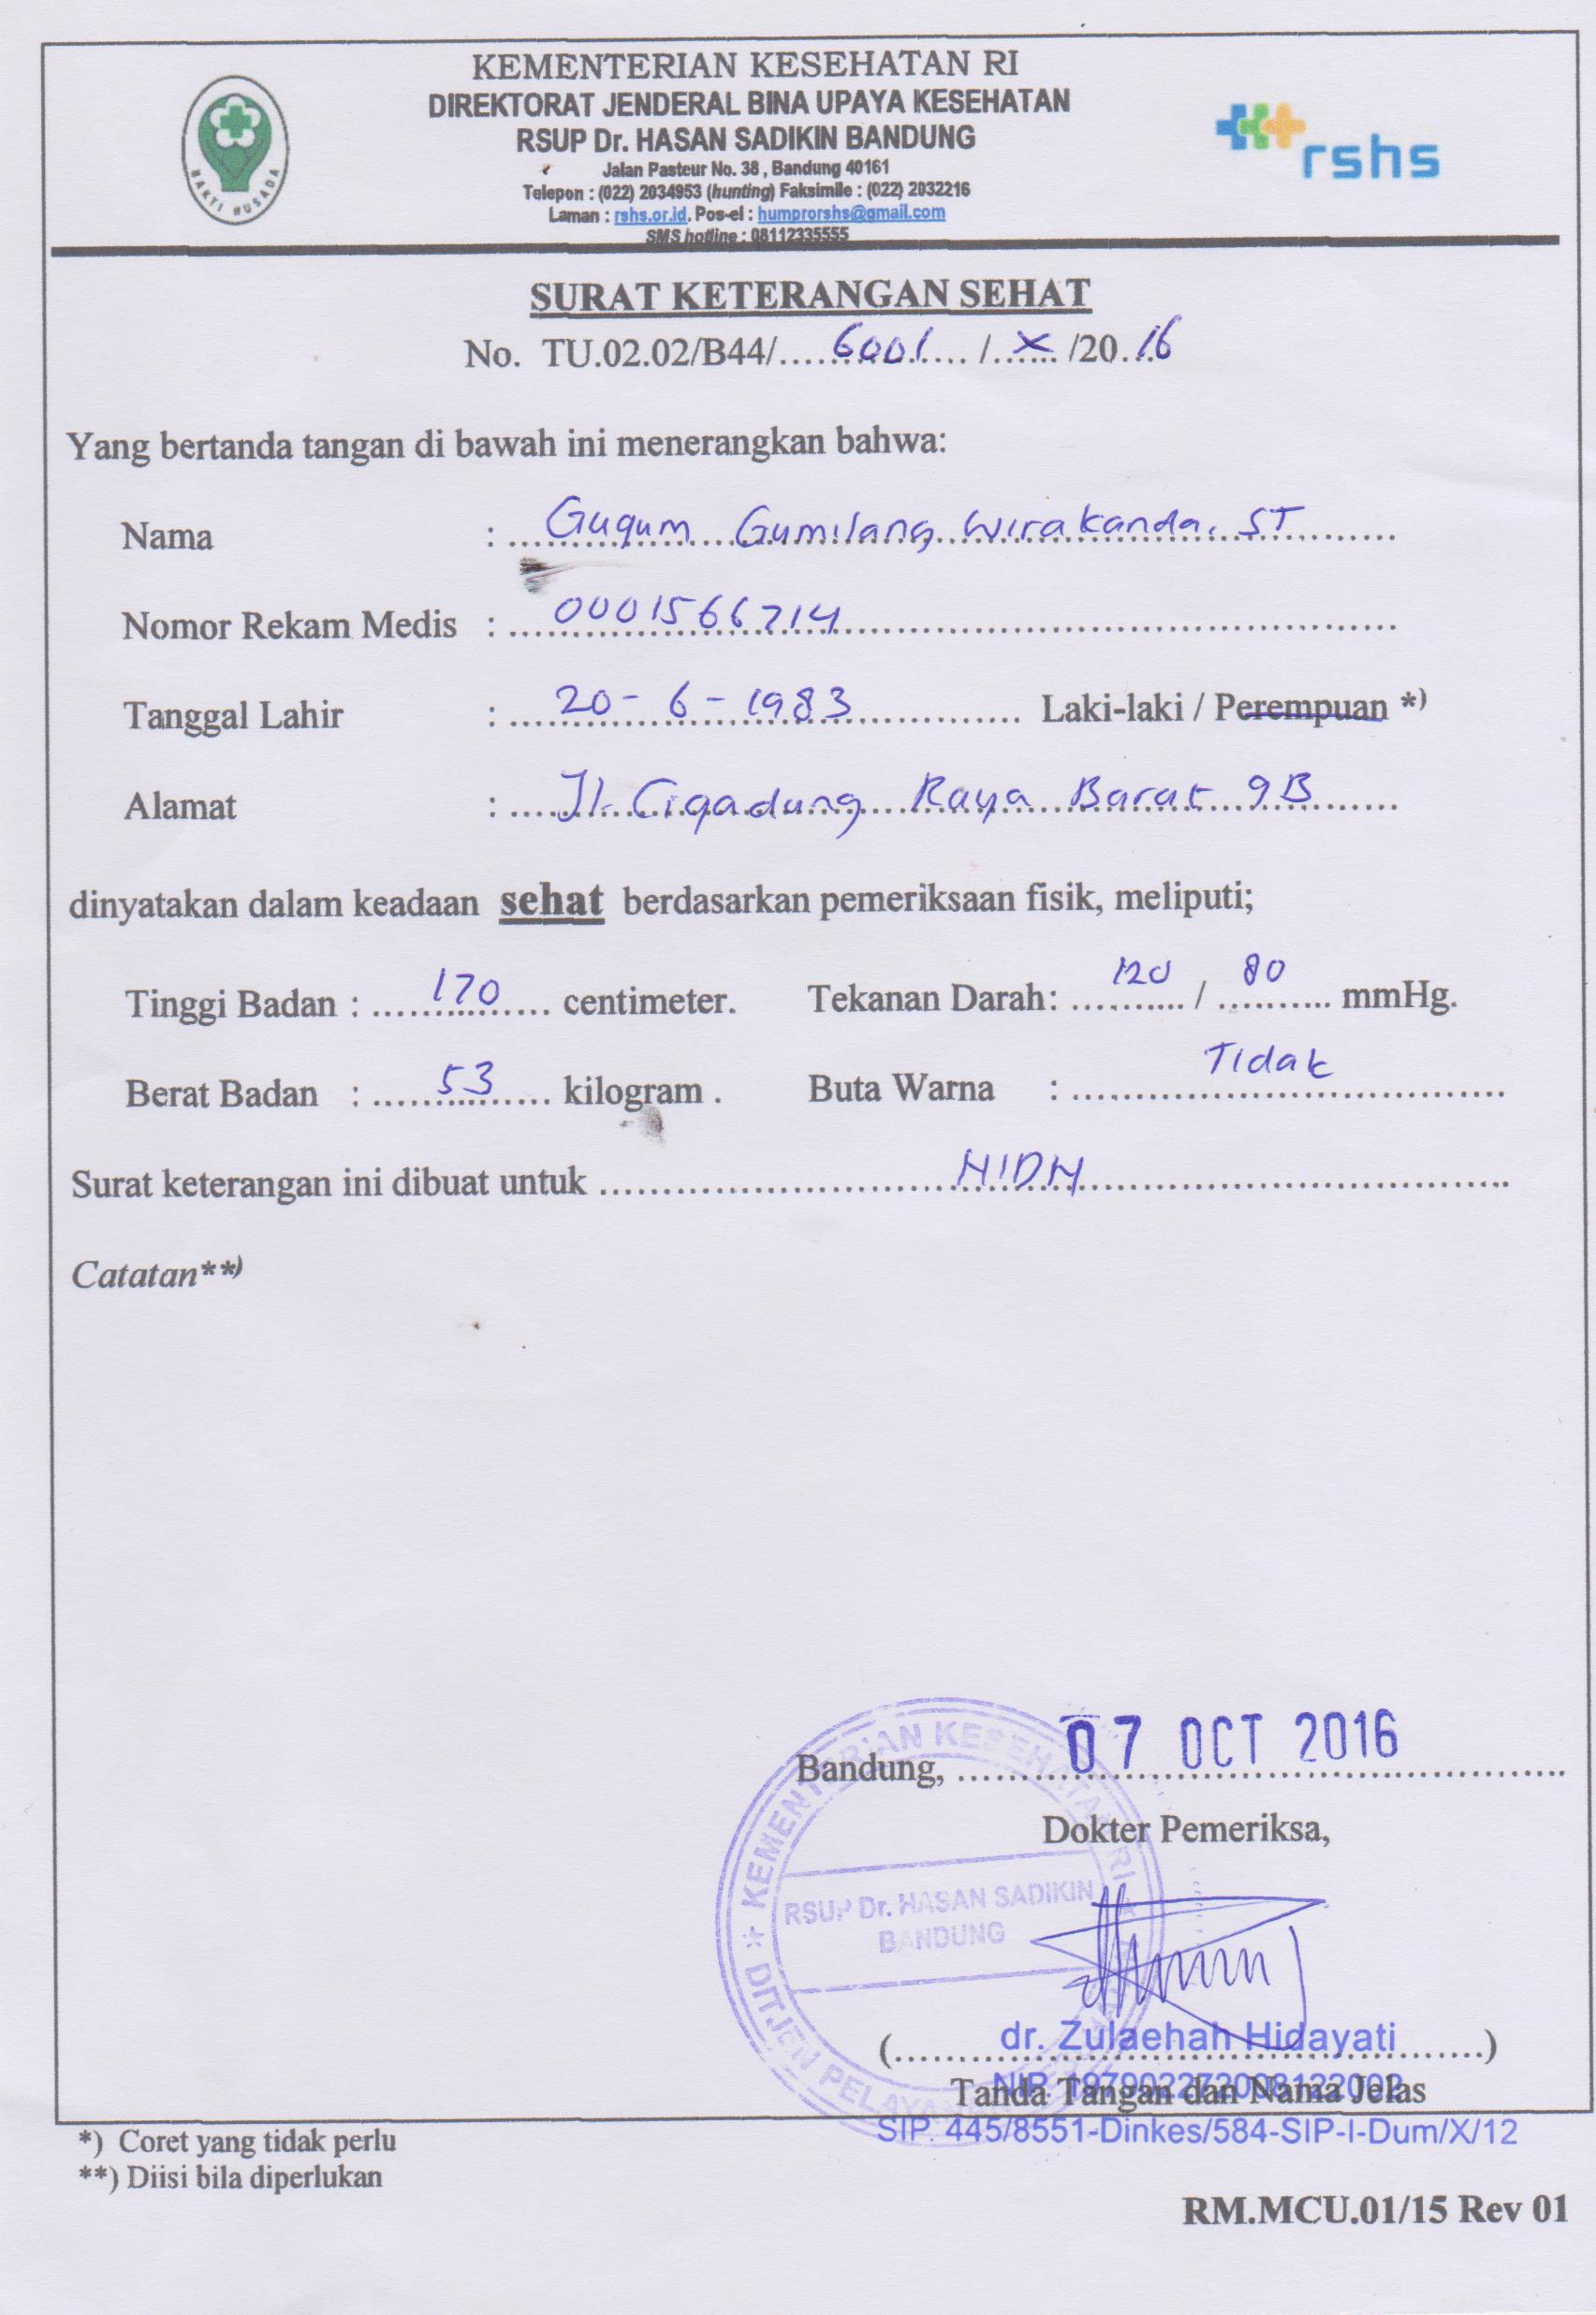 KEMENTERIAN KESEHATAN RI
DIREKTORAT JENDERAL BINA UPAYA KESEHATAN
RSUP Dr. HASAN SADIKIN BANDUNG
Jalan Pasteur No. 38 , Bandung 40161
Telepon : (022) 2034953 (hunting) Faksimile : (022) 2032216
Laman : rshs.or.id. Pos-el : humprorshs@gmail.com
SMS hotline : 08112335555
BAKTI HUSADA
rshs
SURAT KETERANGAN SEHAT
No. TU.02.02/B44/....6001.... /..X.. /20.16
Yang bertanda tangan di bawah ini menerangkan bahwa:
Nama : Gugum Gumilang Wirakanda, ST
Nomor Rekam Medis : 0001566714
Tanggal Lahir : 20-6-1983 Laki-laki / Perempuan *)
Alamat : Jl. Cigadung Raya Barat 9B
dinyatakan dalam keadaan sehat berdasarkan pemeriksaan fisik, meliputi;
Tinggi Badan : 170 centimeter. Tekanan Darah: 120 / 80 mmHg.
Berat Badan : 53 kilogram . Buta Warna : Tidak
Surat keterangan ini dibuat untuk NIDN
Catatan**)
Bandung, 07 OCT 2016
Dokter Pemeriksa,
KEMENTERIAN KESEHATAN RI
RSUP Dr. HASAN SADIKIN
BANDUNG
DITJEN
(dr. Zulaehah Hidayati)
NIP. 197902272008122002
Tanda Tangan dan Nama Jelas
SIP. 445/8551-Dinkes/584-SIP-I-Dum/X/12
*) Coret yang tidak perlu
**) Diisi bila diperlukan
RM.MCU.01/15 Rev 01